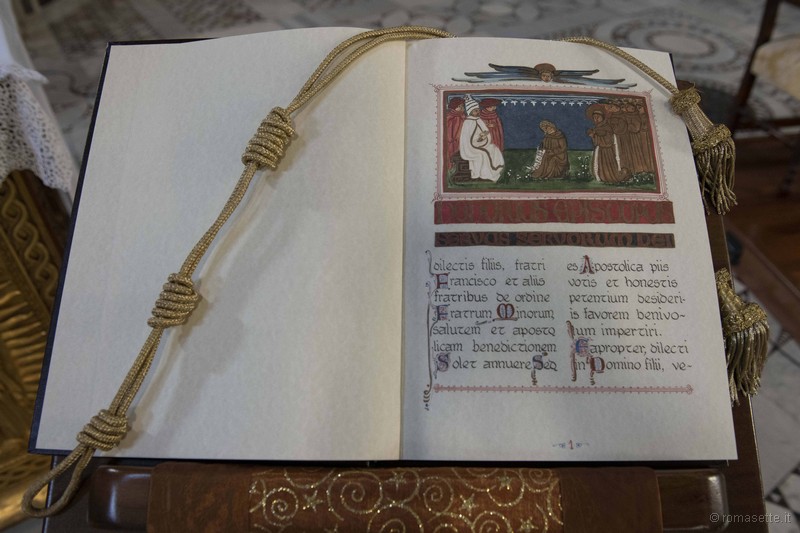 HONORIUS EPISCOPUS
SERVUS SERVORUM DEI
dilectis filiis, fratri
Francisco et aliis
fratribus de ordine
Fratrum Minorum,
salutem et aposto
licam benedictionem
Solet annuere Sed
es Apostolica piis
votis et honestis
petentium desideri-
is favorem benivo-
lum impertiri.
Eapropter, dilecti
in Domino filii, ve-
1
© romasette.it